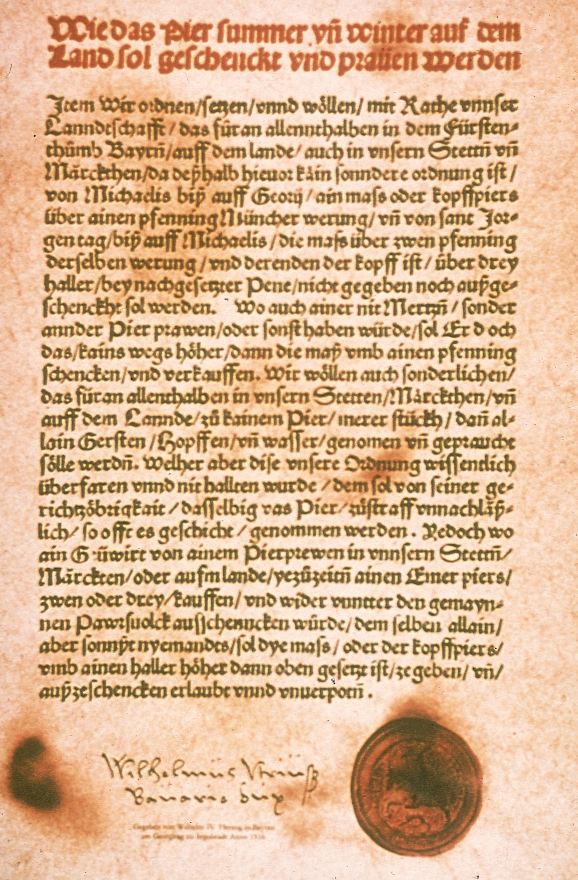 Wie das Pier summer vñ winter auf dem
Land sol geschenckt vnd praüen werden
Item Wir ordnen/setzen/vnnd wöllen/mit Rathe vnnser
Lanndtschafft/das für an allennthalben in dem Fürsten⸗
thůmb Bayrñ/auff dem lande/auch in vnsern Stettñ vñ
Märckthen/da deßhalb hieuor kain sonndere ordnung ist/
von Michaelis biß auff Georij/ain mass oder kopffpiers
über ainen pfenning Müncher werung/vñ von sant Jor⸗
gentag/biß auff Michaelis/die mass über zwen pfenning
derselben werung/vnd derenden der kopff ist/über drey
haller/bey nachgesetzter Pene/nicht gegeben noch außge⸗
schenckht sol werden. Wo auch ainer nit Mertzñ/sonder
annder Pier prawen/oder sonst haben würde/sol Er doch
das/kains wegs höher/dann die maß vmb ainen pfenning
schencken/vnd verkauffen. Wir wöllen auch sonderlichen/
das für an allenthalben in vnsern Stetten/Märckthen/vñ
auff dem Lannde/zů kainem Pier/merer stückh/dañ al⸗
lain Gersten/Hopffen/vñ wasser/genomen vñ gepraucht
sölle werdñ. Welher aber dise vnsere Ordnung wissentlich
überfaren vnnd nit hallten wurde/dem sol von seiner ge⸗
richtzöbrigkait/dasselbig vas Pier/zůstraff vnnachläß⸗
lich/so offt es geschicht/genommen werden. Yedoch wo
ain Güwirt von ainem Pierprewen in vnnsern Stettñ/
Märckten/oder aufm lande/yezůzeitñ ainen Emer piers/
zwen oder drey/kauffen/vnd wider vnntter den gemayn⸗
nen Pawrsuolck ausschenncken würde/dem selben allain/
aber sonnßt nyemandes/sol dye mass/oder der kopffpiers/
vmb ainen haller höher dann oben gesetzt ist/zegeben/vñ/
außzeschencken erlaubt vnnd vnuerpotñ.
Wilhelmus
Bavarie dux
Gegeben von Wilhelm IV. Herzog in Bayern
am Georgitag zu Ingolstadt Anno 1516